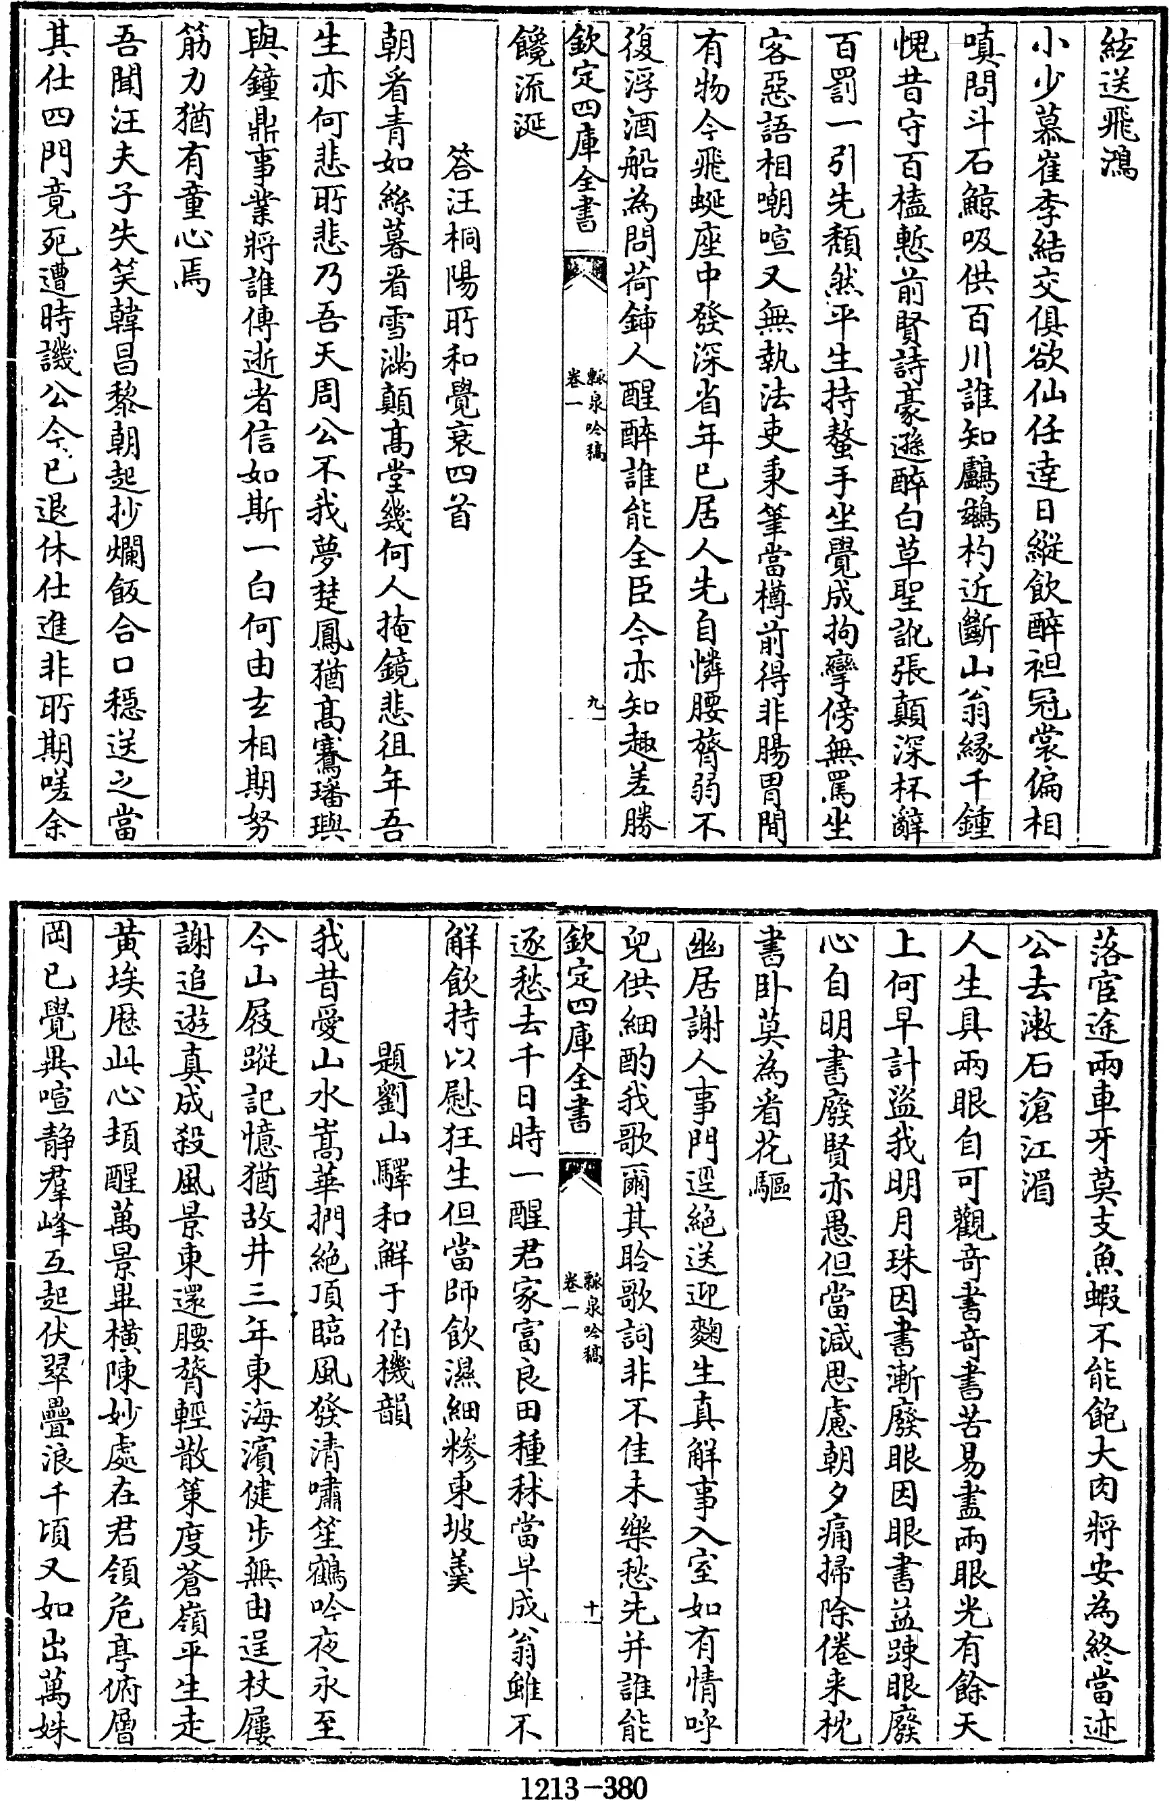 絃送飛鴻
小少慕崔李結交俱欲仙任達日縱飲醉袒冠裳偏相
嗔問斗石鯨吸供百川誰知鸕鷀杓近斷山翁緣千鍾
愧昔守百榼慙前賢詩豪遜醉白草聖訛張顛深杯辭
百罰一引先頹然平生持螯手坐覺成拘攣傍無罵坐
客惡語相嘲喧又無執法吏秉筆當樽前得非腸胃間
有物今飛蜒座中發深省年已居人先自憐腰膂弱不
復浮酒船為問荷鍤人醒醉誰能全臣今亦知趣差勝
欽定四庫全書
瓢泉吟稿
卷一
九
饞流涎
答汪桐陽所和覺衰四首
朝看青如絲暮看雪滿顛高堂幾何人掩鏡悲徂年吾
生亦何悲所悲乃吾天周公不我夢楚鳳猶高騫璠璵
與鐘鼎事業將誰傳逝者信如斯一白何由玄相期努
筋力猶有童心焉
吾聞汪夫子失笑韓昌黎朝起抄爛飯合口穩送之當
其仕四門竟死遭時譏公今已退休仕進非所期嗟余
落宦途兩車牙莫支魚蝦不能飽大肉將安為終當迹
公去漱石滄江湄
人生具兩眼自可觀奇書奇書苦易盡兩眼光有餘天
上何早計盜我明月珠因書漸廢眼因眼書益踈眼廢
心自明書廢賢亦愚但當減思慮朝夕痛掃除倦来枕
書卧莫為看花驅
幽居謝人事門逕絕送迎麴生真解事入室如有情呼
兒供細酌我歌爾其聆歌詞非不佳未樂愁先并誰能
欽定四庫全書
瓢泉吟稿
卷一
十
逐愁去千日時一醒君家富良田種秫當早成翁雖不
解飲持以慰狂生但當師飲濕細糝東坡羹
題劉山驛和鮮于伯機韻
我昔愛山水嵩華捫絕頂臨風發清嘯笙鶴吟夜永至
今山屐蹤記憶猶故井三年東海濱健步無由逞杖屨
謝追遊真成殺風景東還腰膂輕散策度蒼嶺平生走
黃埃歷此心頓醒萬景畢橫陳妙處在君領危亭俯層
岡已覺異喧静羣峰互起伏翠疊浪千頃又如出萬姝
1213-380